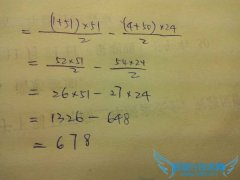 = (1+51)×51/2 - (4+50)×24/2
= 52×51/2 - 54×24/2
= 26×51 - 27×24
= 1326 - 648
= 678